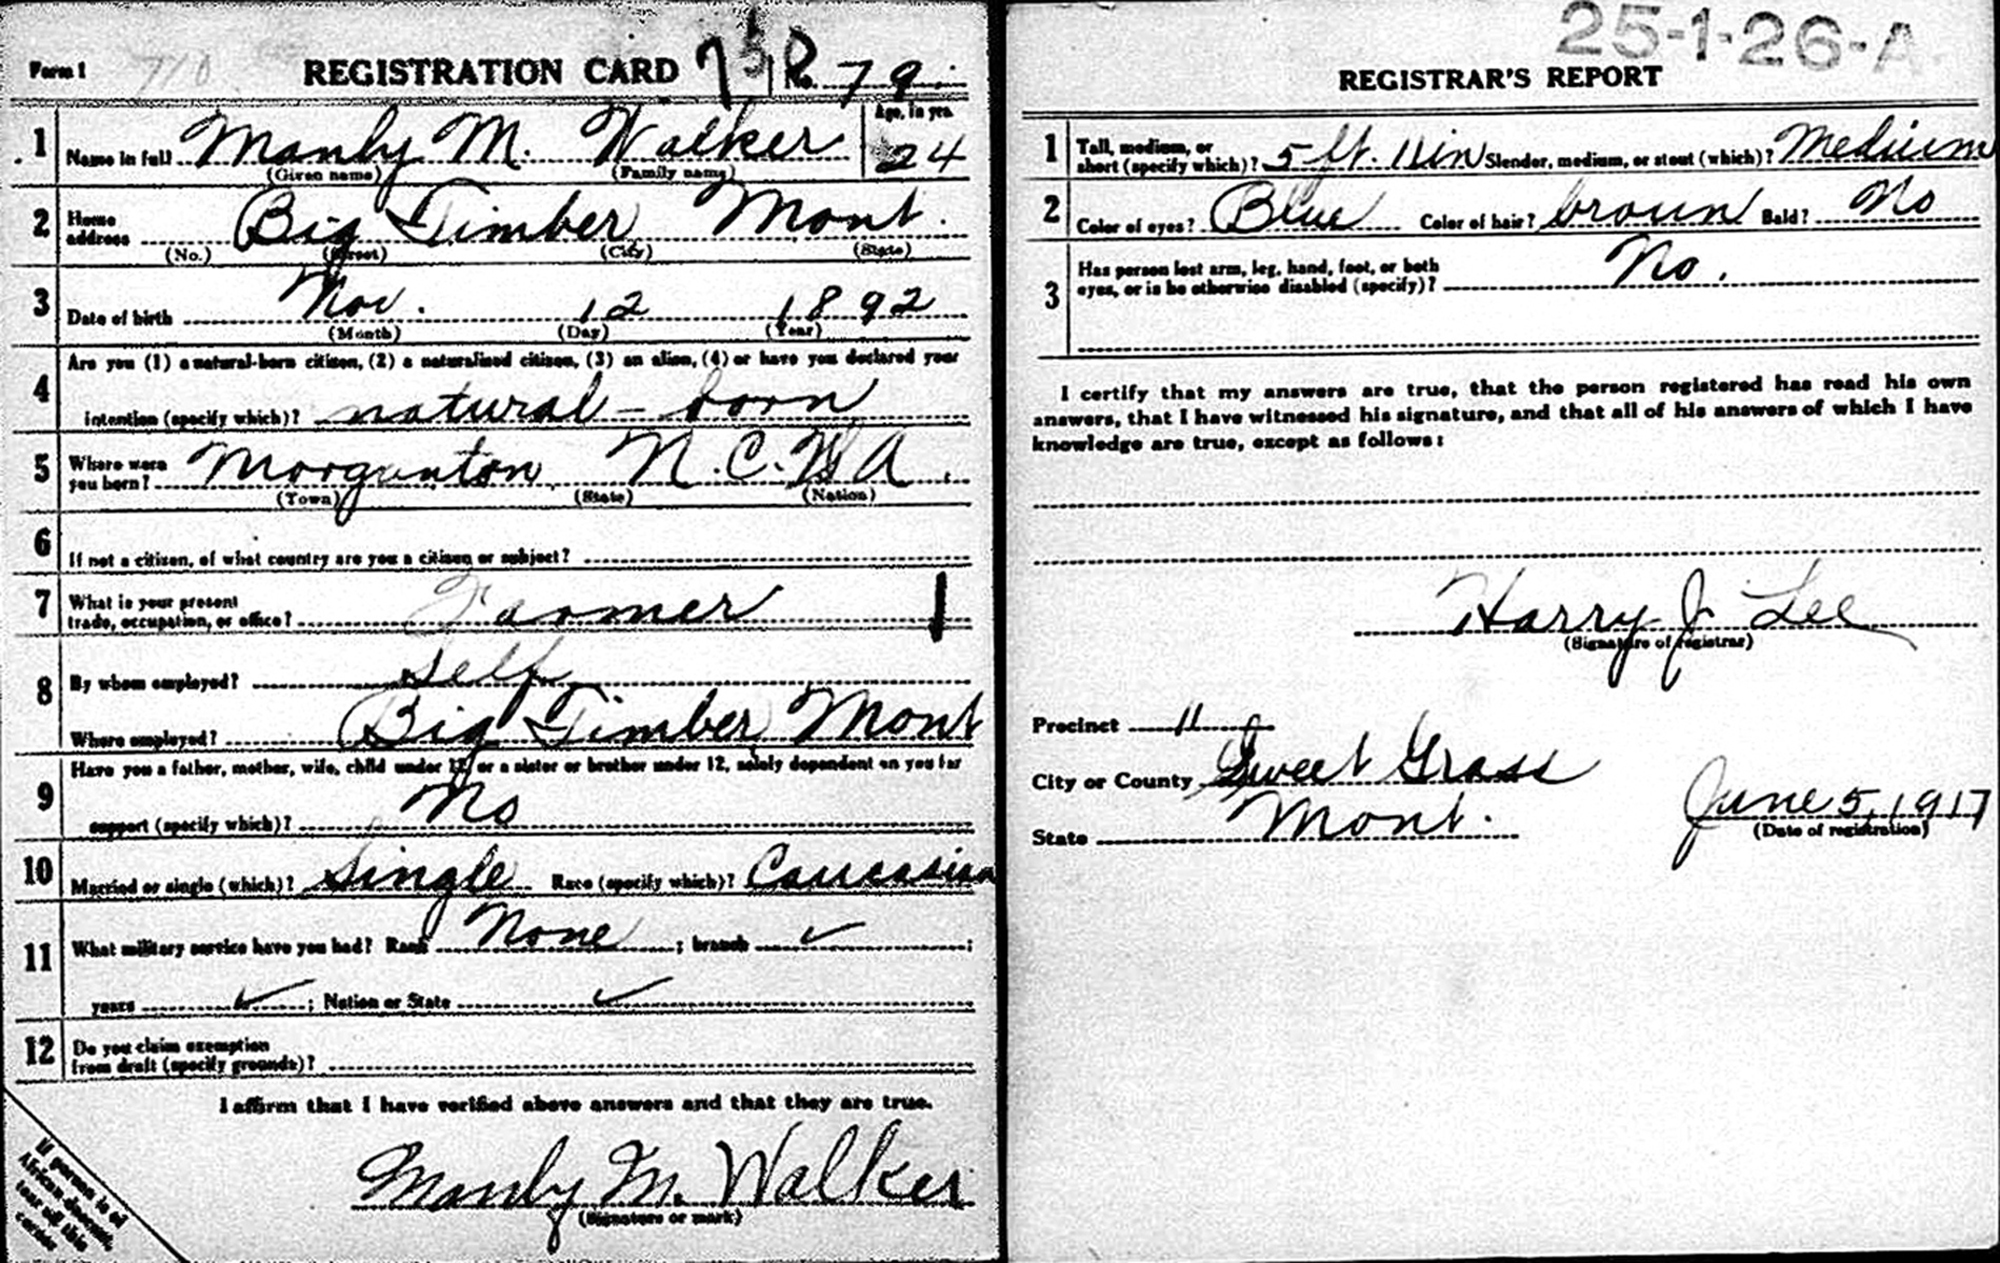 Form 1 710 REGISTRATION CARD No. 79
1 Name in full Manly M. Walker Age, in yrs. 24
(Given name) (Family name)
2 Home address Big Timber Mont.
(No.) (Street) (City) (State)
3 Date of birth Nov. 12 1892
(Month) (Day) (Year)
4 Are you (1) a natural-born citizen, (2) a naturalized citizen, (3) an alien, (4) or have you declared your
intention (specify which)? natural-born
5 Where were you born? Morganton N.C. USA.
(Town) (State) (Nation)
6 If not a citizen, of what country are you a citizen or subject?
7 What is your present
trade, occupation, or office? Farmer
8 By whom employed? Self
Where employed? Big Timber Mont
9 Have you a father, mother, wife, child under 12, or a sister or brother under 12, solely dependent on you for
support (specify which)? No
10 Married or single (which)? Single Race (specify which)? Caucasian
11 What military service have you had? Rank None ; branch ✓ ;
years ✓ ; Nation or State ✓
12 Do you claim exemption
from draft (specify grounds)?
I affirm that I have verified above answers and that they are true.
Manly M. Walker
(Signature or mark)
If person is of
African descent,
tear off this
corner
25-1-26-A
REGISTRAR'S REPORT
1 Tall, medium, or
short (specify which)? 5 ft. 11 in Slender, medium, or stout (which)? Medium
2 Color of eyes? Blue Color of hair? brown Bald? No
3 Has person lost arm, leg, hand, foot, or both
eyes, or is he otherwise disabled (specify)? No.
I certify that my answers are true, that the person registered has read his own
answers, that I have witnessed his signature, and that all of his answers of which I have
knowledge are true, except as follows:
Harry J. Lee
(Signature of registrar)
Precinct 11
City or County Sweet Grass
State Mont.
June 5, 1917
(Date of registration)